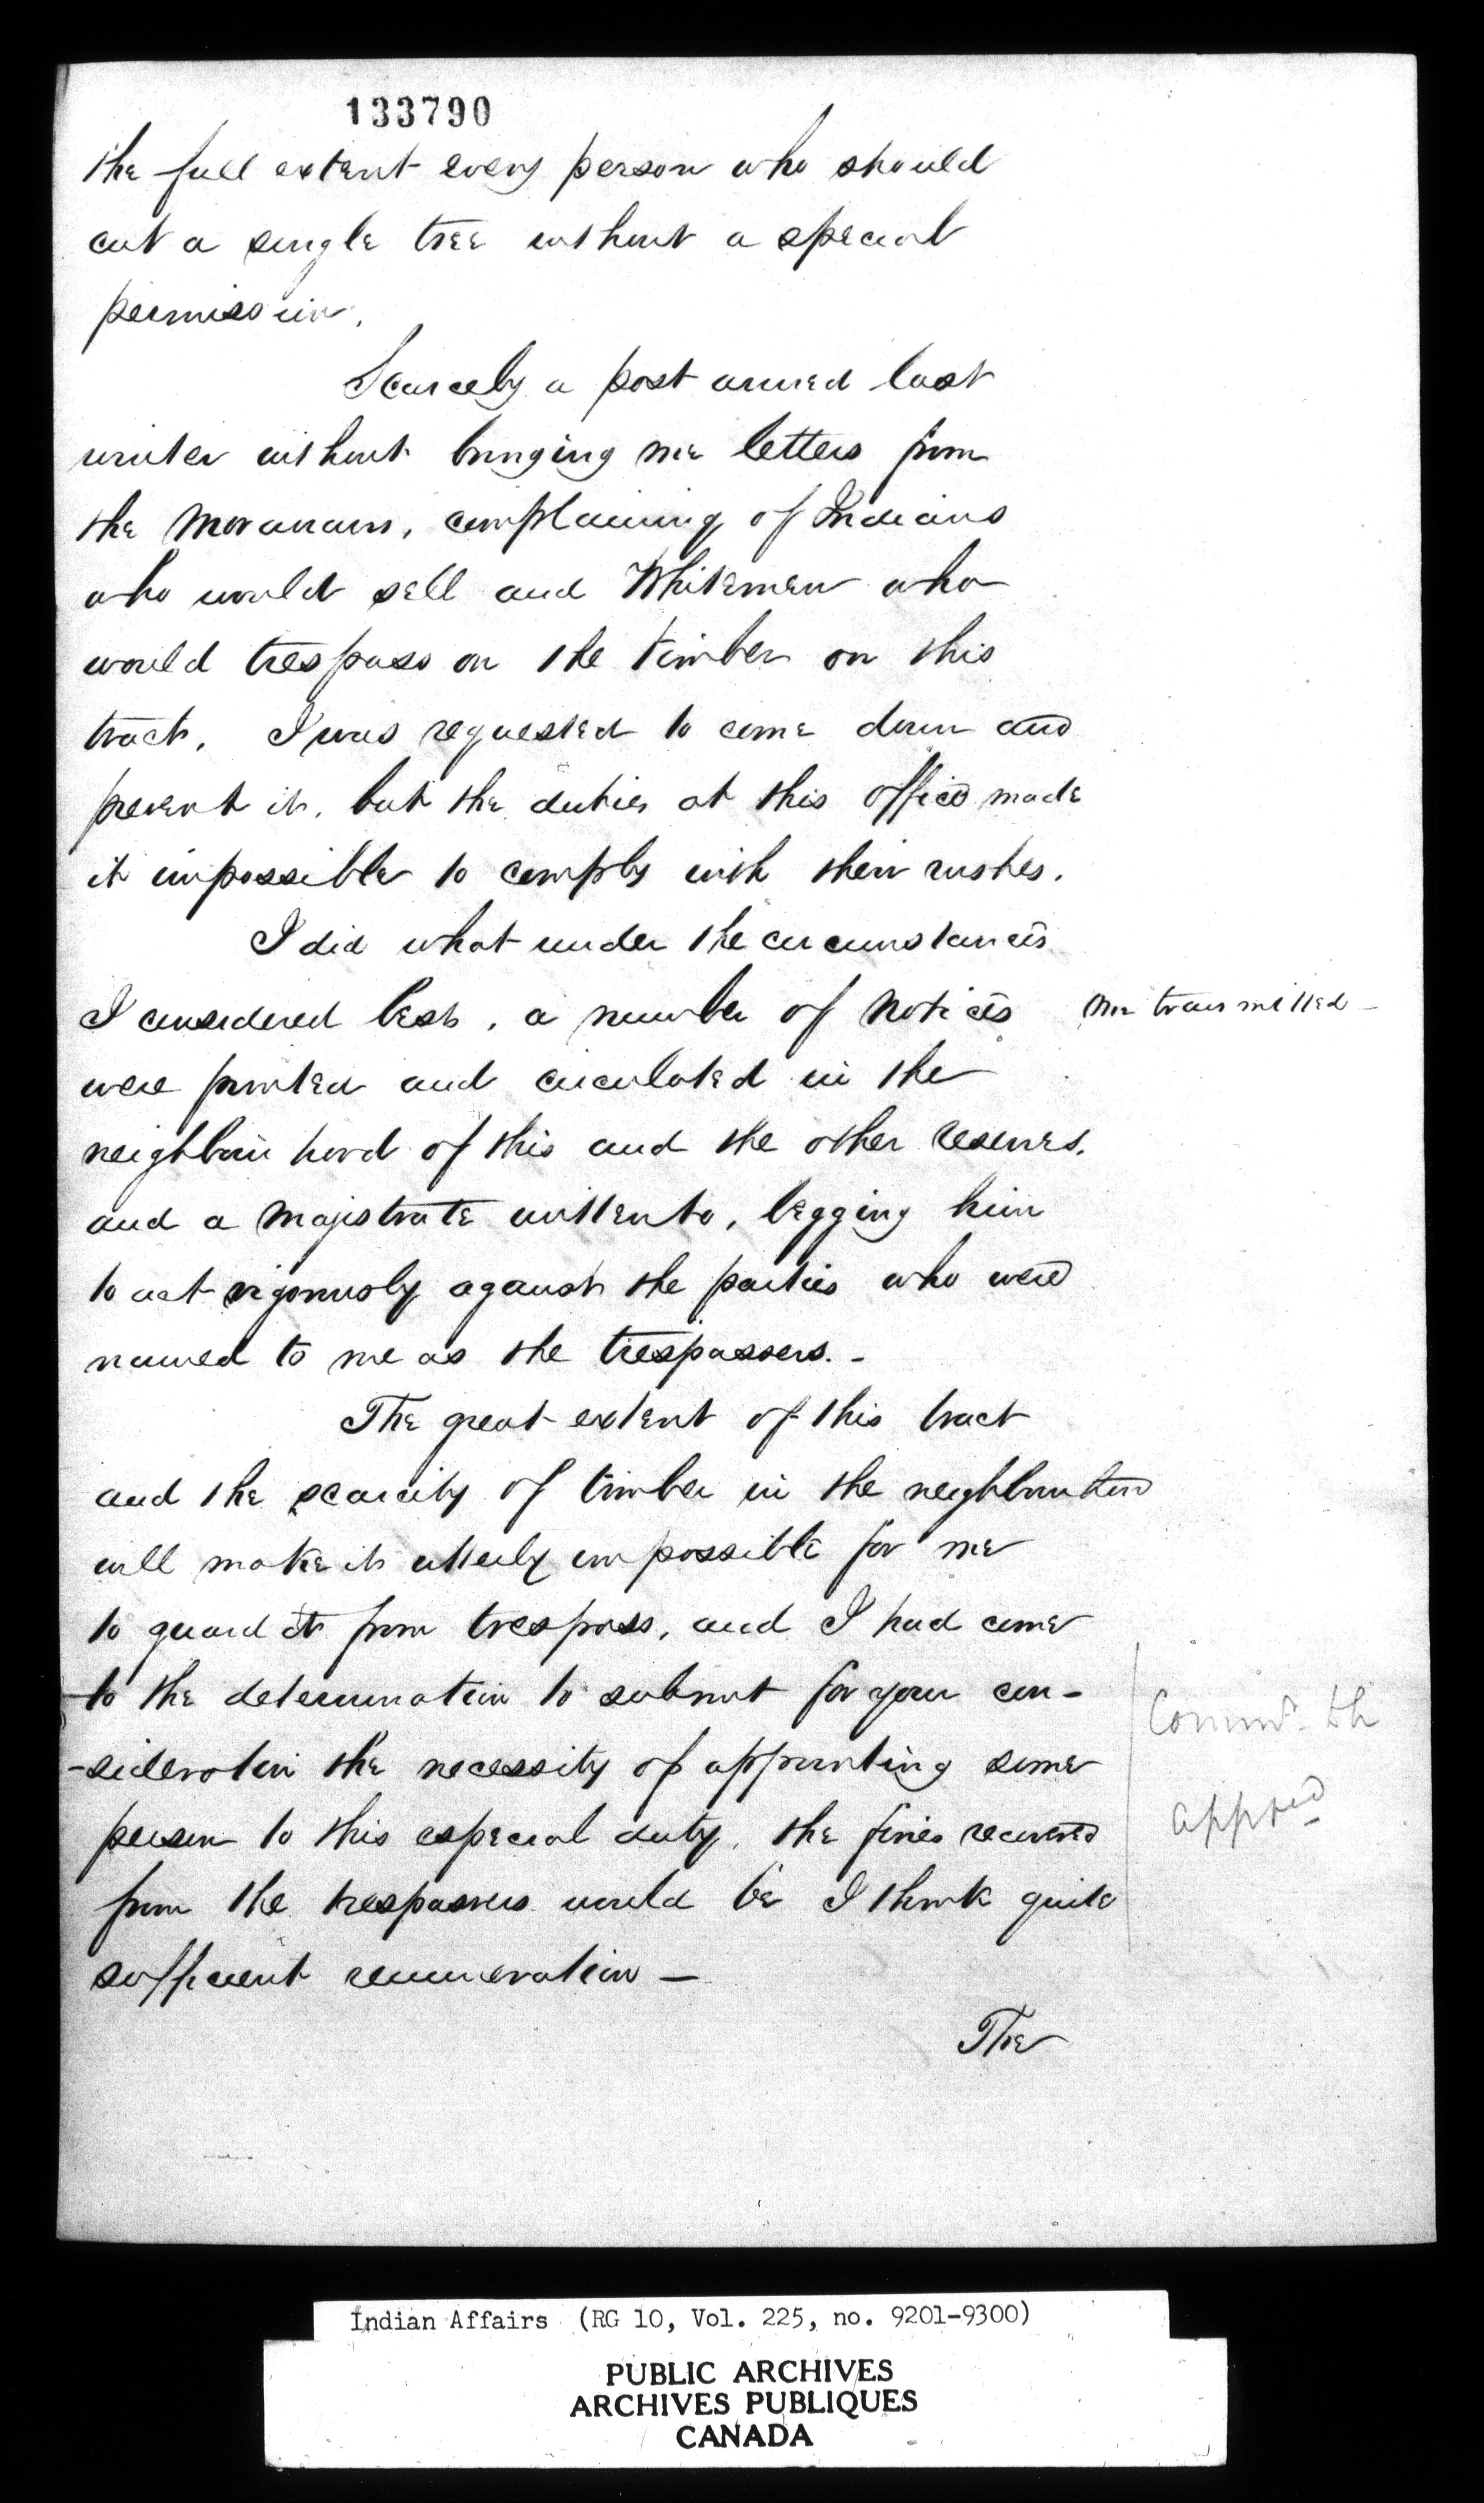 133790
the full extent every person who should
cut a single tree without a special
permission.
Scarcely a post arrived last
winter without bringing me letters from
the Moravians, complaining of Indians
who would sell and Whitemen who
would trespass on the timber on this
tract. I was requested to come down and
prevent it, but the duties at this office made
it impossible to comply with their wishes.
I did what under the circumstances
I considered best, a number of notices
transmitted -
were printed and circulated in the
neighbourhood of this and the other reserves,
and a Magistrate written to, begging him
to act vigorously against the parties who were
named to me as the trespassers. -
The great extent of this tract
and the scarcity of timber in the neighbourhood
will make it utterly impossible for me
to guard it from trespass, and I had come
to the determination to submit for your con-
-sideration the necessity of appointing some
person to this especial duty, the fines recovered
from the trespassers would be I think quite
sufficient remuneration —
The
Indian Affairs (RG 10, Vol. 225, no. 9201-9300)
PUBLIC ARCHIVES
ARCHIVES PUBLIQUES
CANADA